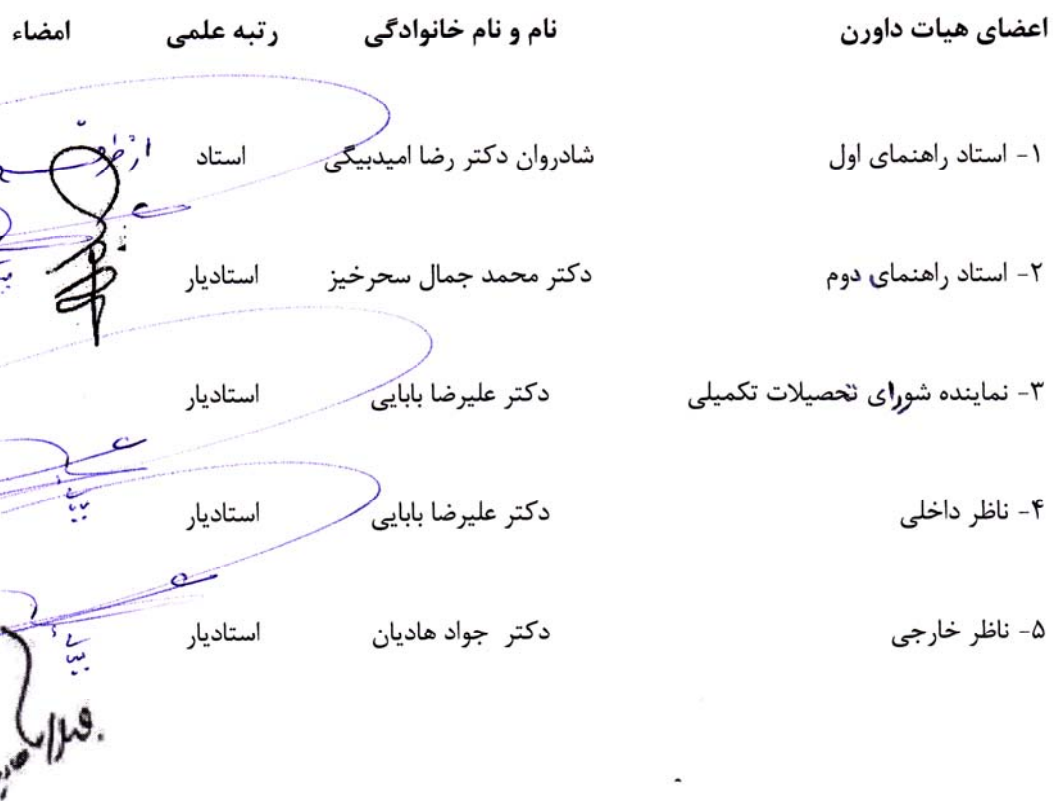 اعضای هیات داورن نام و نام خانوادگی رتبه علمی امضاء
۱- استاد راهنمای اول شادروان دکتر رضا امیدبیگی استاد
۲- استاد راهنمای دوم دکتر محمد جمال سحرخیز استادیار
۳- نماینده شورای تحصیلات تکمیلی دکتر علیرضا بابایی استادیار
۴- ناظر داخلی دکتر علیرضا بابایی استادیار
۵- ناظر خارجی دکتر جواد هادیان استادیار